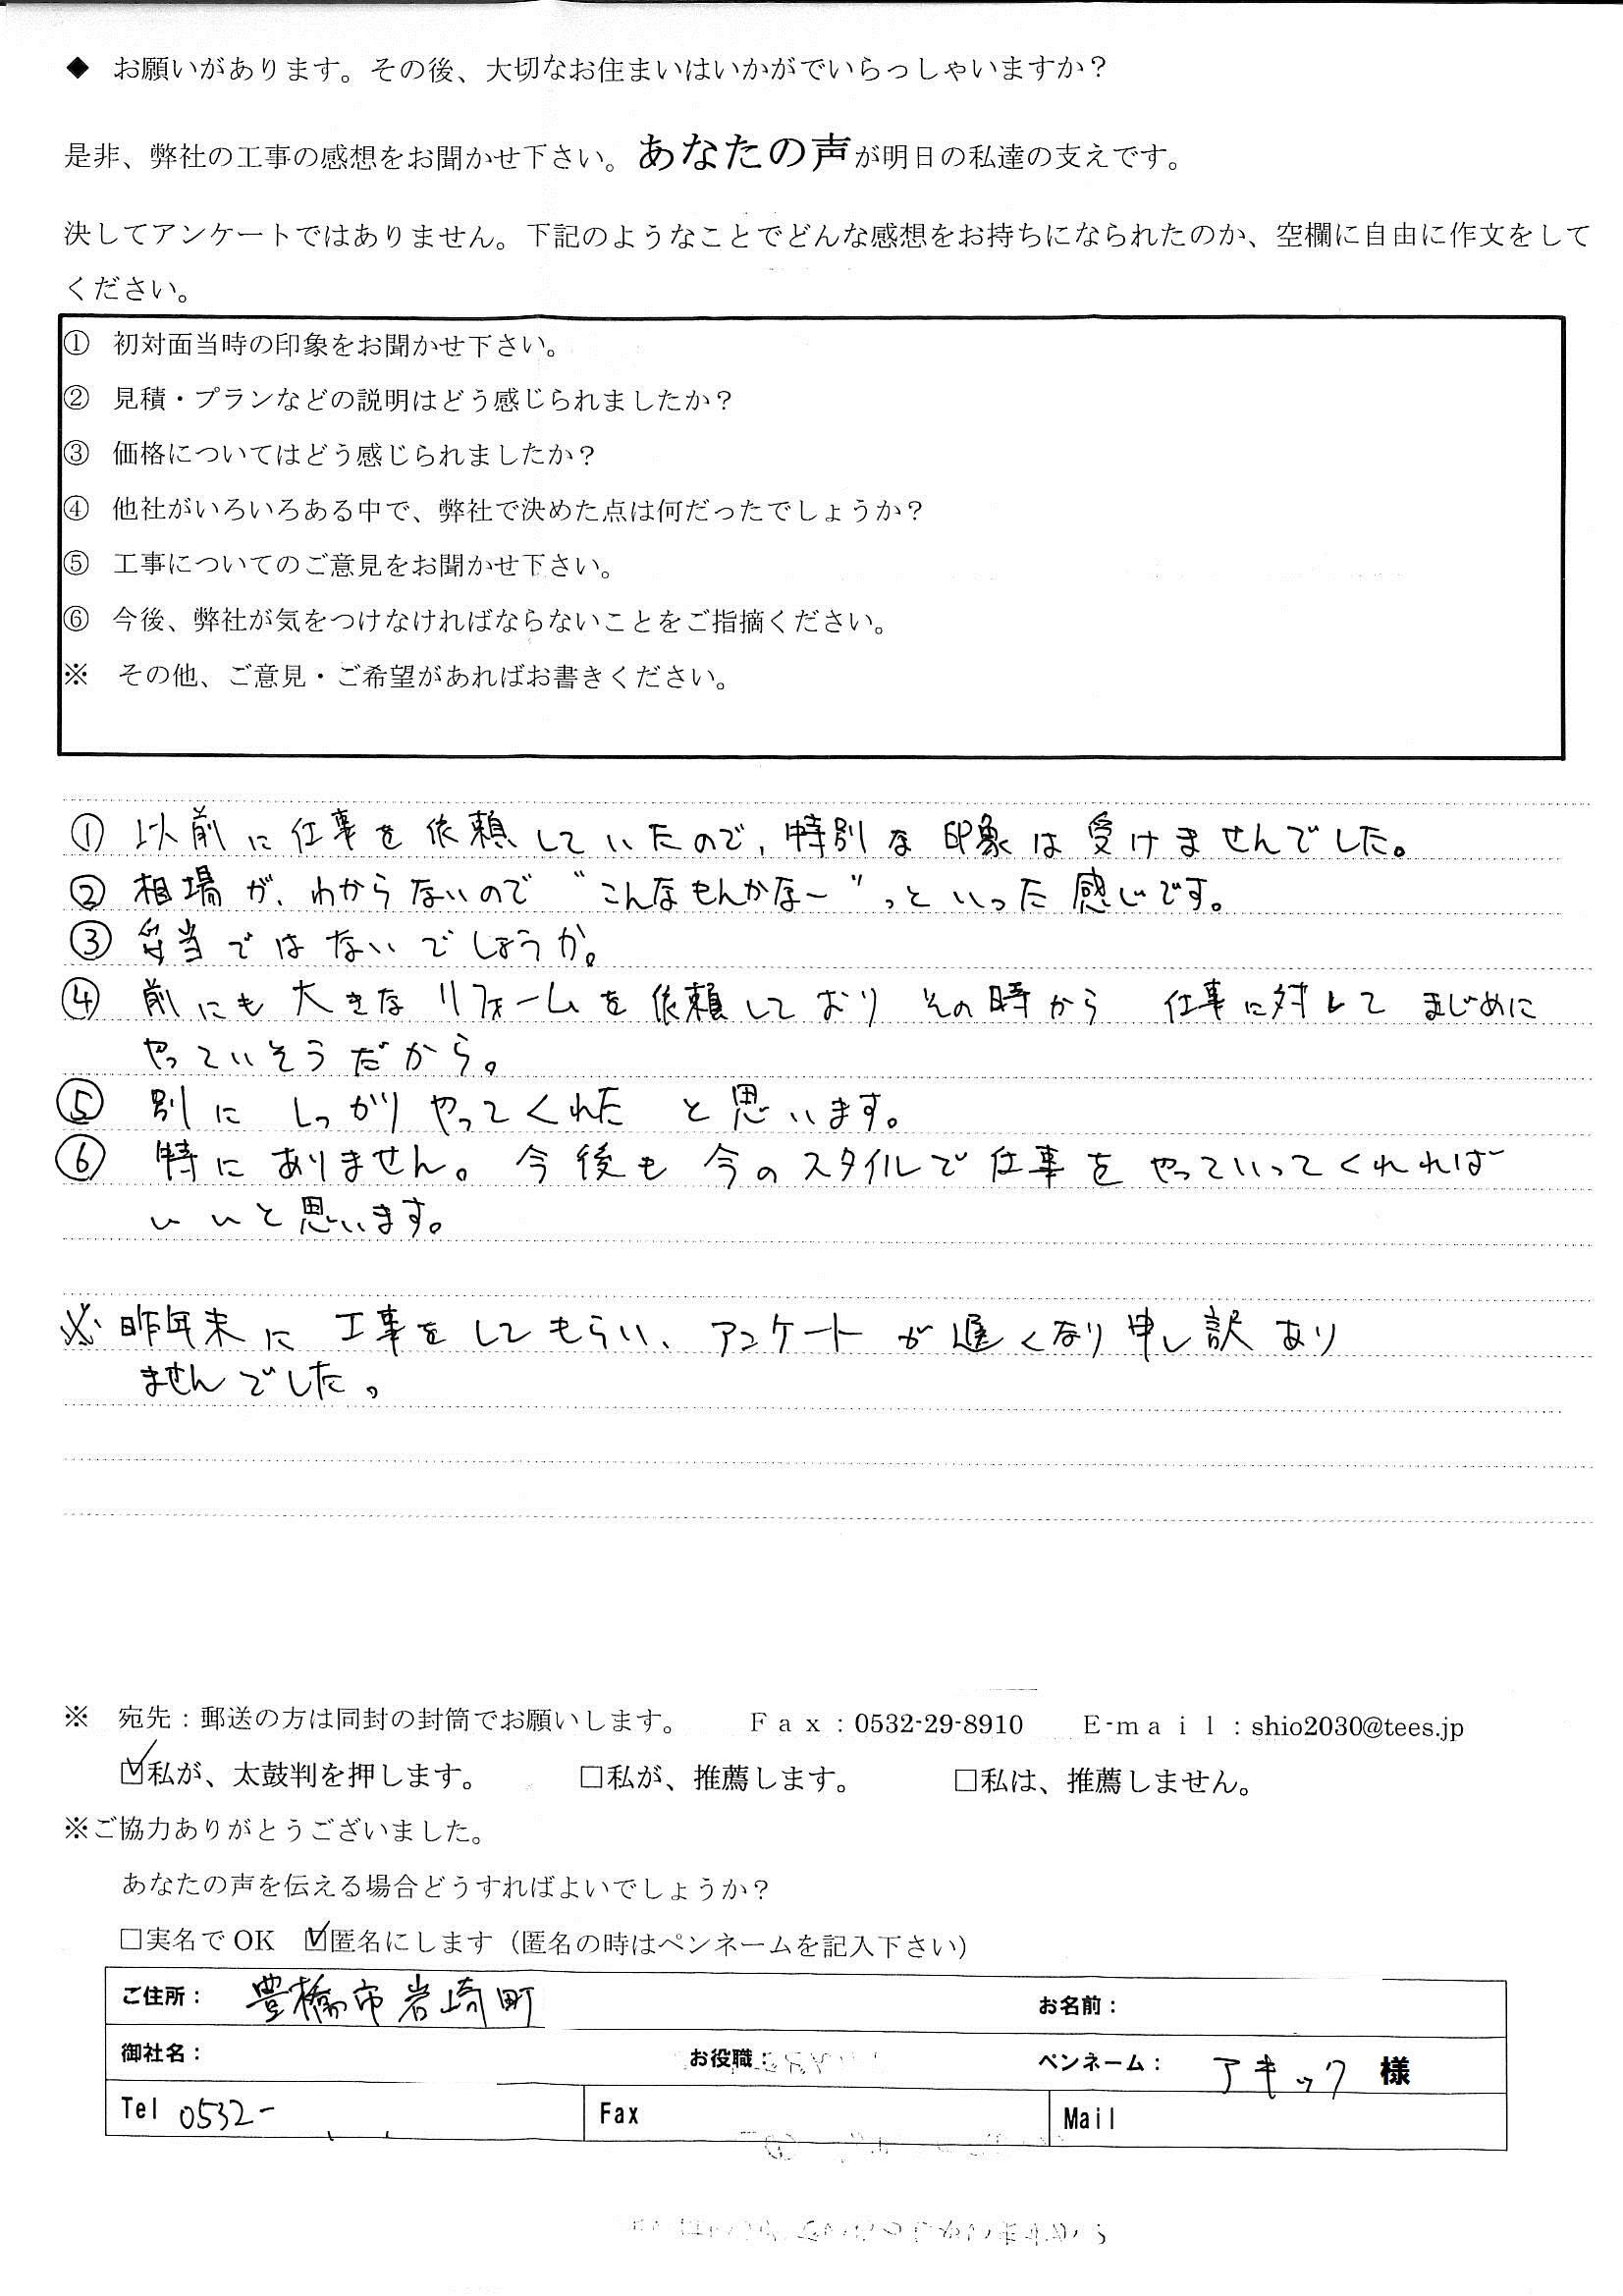 ◆ お願いがあります。その後、大切なお住まいはいかがでいらっしゃいますか？
是非、弊社の工事の感想をお聞かせ下さい。あなたの声が明日の私達の支えです。
決してアンケートではありません。下記のようなことでどんな感想をお持ちになられたのか、空欄に自由に作文をして
ください。
① 初対面当時の印象をお聞かせ下さい。
② 見積・プランなどの説明はどう感じられましたか？
③ 価格についてはどう感じられましたか？
④ 他社がいろいろある中で、弊社で決めた点は何だったでしょうか？
⑤ 工事についてのご意見をお聞かせ下さい。
⑥ 今後、弊社が気をつけなければならないことをご指摘ください。
※ その他、ご意見・ご希望があればお書きください。
① 以前に仕事を依頼していたので、特別な印象は受けませんでした。
② 相場が、わからないので “こんなもんかなー”っといった感じです。
③ 当ではないでしょうか。
④ 前にも大きなリフォームを依頼しており その時から 仕事に対して まじめに
やっていそうだから。
⑤ 別に しっかりやってくれた と思います。
⑥ 特にありません。今後も今のスタイルで仕事をやっていってくれれば
いいと思います。
※ 昨年末に 工事をしてもらい、アンケートが遅くなり申し訳あり
ませんでした。
※ 宛先：郵送の方は同封の封筒でお願いします。 Ｆａｘ：0532-29-8910 Ｅ-ｍａｉｌ：shio2030@tees.jp
☑私が、太鼓判を押します。 □私が、推薦します。 □私は、推薦しません。
※ご協力ありがとうございました。
あなたの声を伝える場合どうすればよいでしょうか？
□実名でOK ☑匿名にします（匿名の時はペンネームを記入下さい）
ご住所： 豊橋市岩崎町 お名前：
御社名： お役職： ペンネーム： アキック 様
Tel 0532- Fax Mail